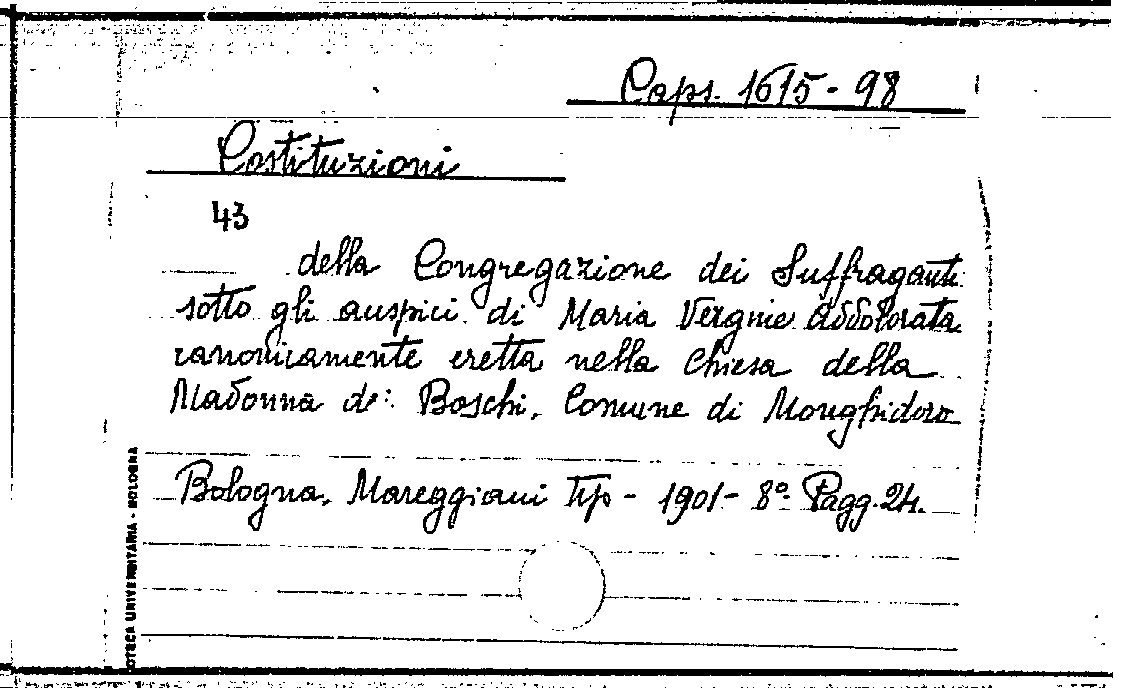 Caps. 1615-98
Costituzioni
43
della Congregazione dei Suffraganti
sotto gli auspici di Maria Vergine Addolorata
canonicamente eretta nella Chiesa della
Madonna de' Boschi, Comune di Monghidoro
Bologna, Mareggiani Tip - 1901 - 8º. Pagg. 24.
OTECA UNIVERSITARIA - BOLOGNA